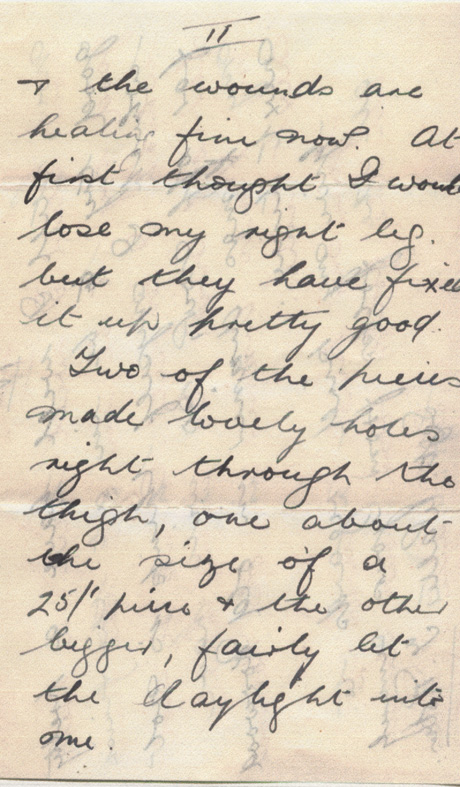 II
& the wounds are
healing fine now. At
first thought I would
lose my right leg.
but they have fixed
it up pretty good.
Two of the pieces
made lovely holes
right through the
thigh, one about
the size of a
25/' piece & the other
bigger, fairly let
the daylight into
me.